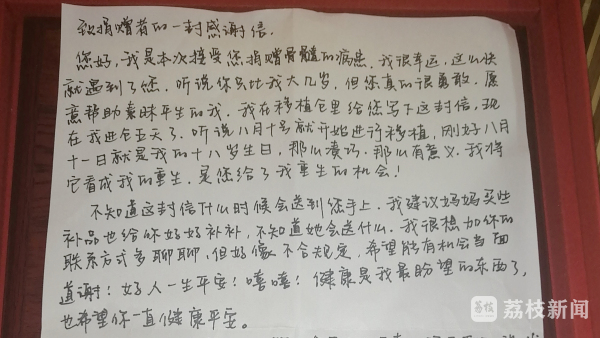 致捐赠者的一封感谢信.
您好,我是本次接受您捐赠骨髓的病患,我很幸运,这么快
就遇到了您.听说你只比我大几岁,但您真的很勇敢,愿
意帮助素昧平生的我.我在移植仓里给您写下这封信,现
在我进仓五天了.听说八月十号就开始进行移植,刚好八月
十一日就是我的十八岁生日,那么凑巧.那么有意义.我将
它看成我的重生.是您给了我重生的机会!
不知道这封信什么时候会送到您手上.我建议妈妈买些
补品也给你好好补补,不知道她会送什么.我很想加你的
联系方式多聊聊,但好像不合规定,希望能有机会当面
道谢!好人一生平安!嘻嘻!健康是我最盼望的东西了,
也希望你一直健康平安。
荔枝
荔枝新闻